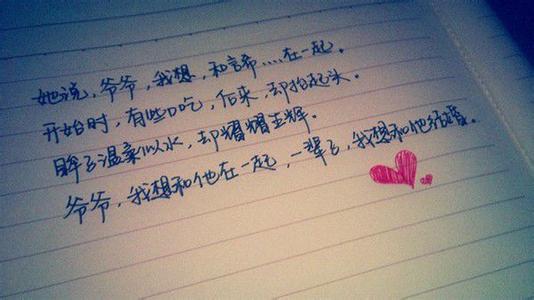 她说,爷爷,我想,和言希....在一起。
开始时,有些口吃,后来,却抬起头。
眸子温柔似水,却耀耀生辉。
爷爷,我想和他在一起,一辈子,我想和他结婚。